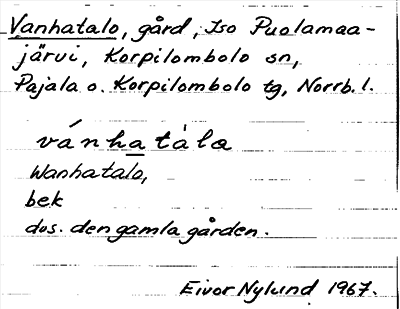 Vanhatalo, gård, Iso Puolamaa-
järvi, Korpilombolo sn,
Pajala o. Korpilombolo tg, Norrb. l.
vánhatàla
Wanhatalo,
bek
dvs. den gamla gården.
Eivor Nylund 1967.